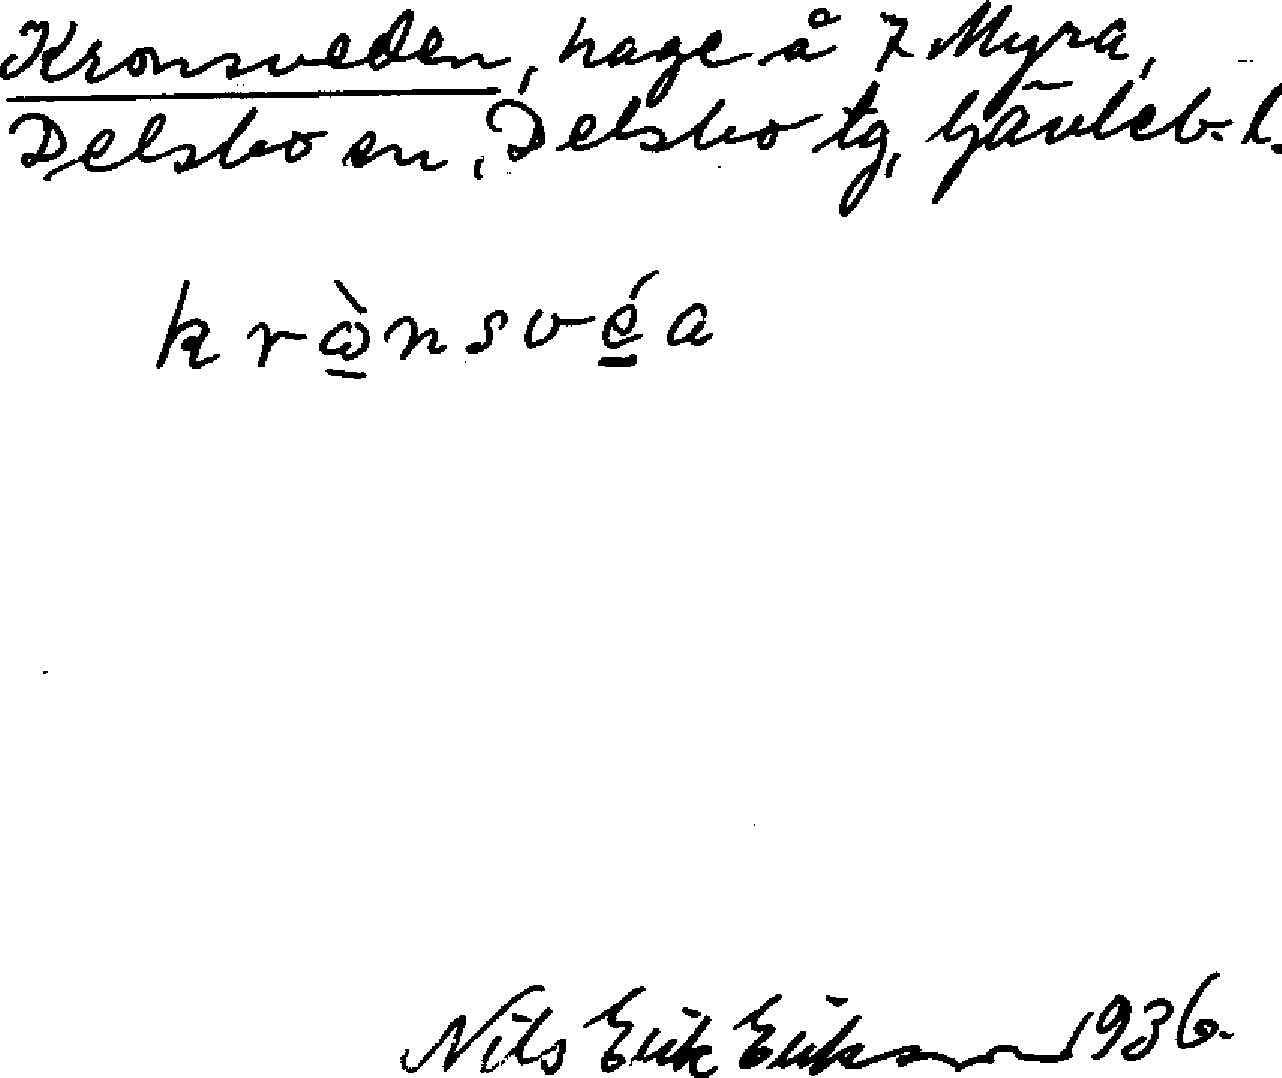 Kronsveden, hage å 7 Myra,
Delsbo sn, Delsbo tg, Gävleb. l.
krὼ̱nsvé̱a
Nils Erik Eriksson 1936.